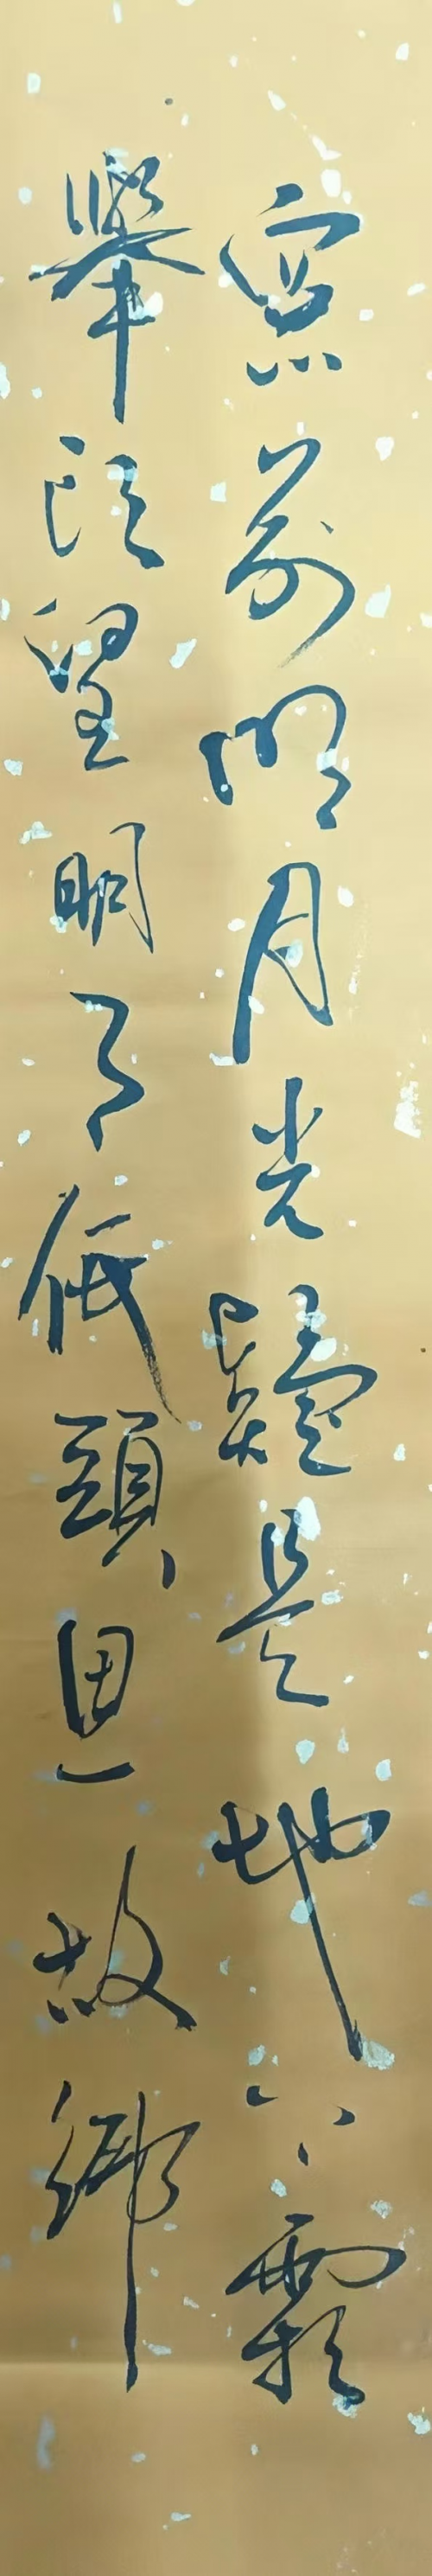 窻前明月光疑是地上霜
舉頭望明月低頭思故鄉